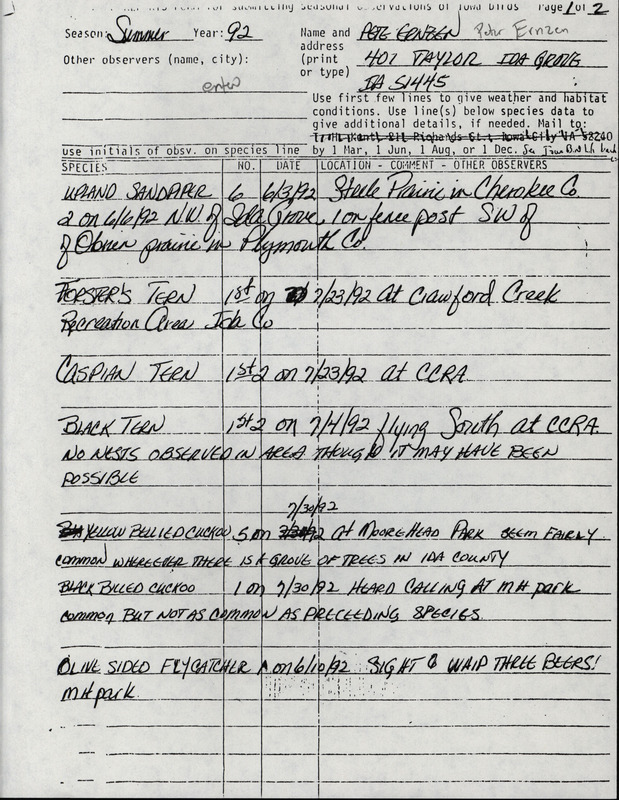 this form for submitting seasonal observations of Iowa birds Page 1 of 2
Season: Summer Year: 92 Name and PETE ERNZEN Peter Ernzen
Other observers (name, city): address 407 TAYLOR IDA GROVE
(print
or type) IA 51445
enter
Use first few lines to give weather and habitat
conditions. Use line(s) below species data to
give additional details, if needed. Mail to:
use initials of obsv. on species line by 1 Mar, 1 Jun, 1 Aug, or 1 Dec.
SPECIES NO. DATE LOCATION - COMMENT - OTHER OBSERVERS
UPLAND SANDPIPER 6 6/3/92 Steele Prairie in Cherokee Co.
2 on 6/6/92 N.W. of Ida Grove, 1 on fence post SW of
of Obrien prairie in Plymouth Co.
FORSTER'S TERN 1st on 7/23/92 at Crawford Creek
Recreation Area Ida Co
CASPIAN TERN 1st 2 on 7/23/92 at CCRA
BLACK TERN 1st 2 on 7/4/92 flying South at CCRA.
NO NESTS OBSERVED IN AREA THOUGH IT MAY HAVE BEEN
POSSIBLE
7/30/92
YELLOW BELLIED CUCKOO 5 on at MOOREHEAD PARK SEEM FAIRLY
common WHEREEVER THERE IS A GROVE OF TREES IN IDA COUNTY
BLACK BILLED CUCKOO 1 on 7/30/92 HEARD CALLING AT MH park
common BUT NOT AS COMMON AS PRECEEDING SPECIES.
OLIVE SIDED FLYCATCHER 1 on 6/10/92 SIGHT & WHIP THREE BEERS!
MH park